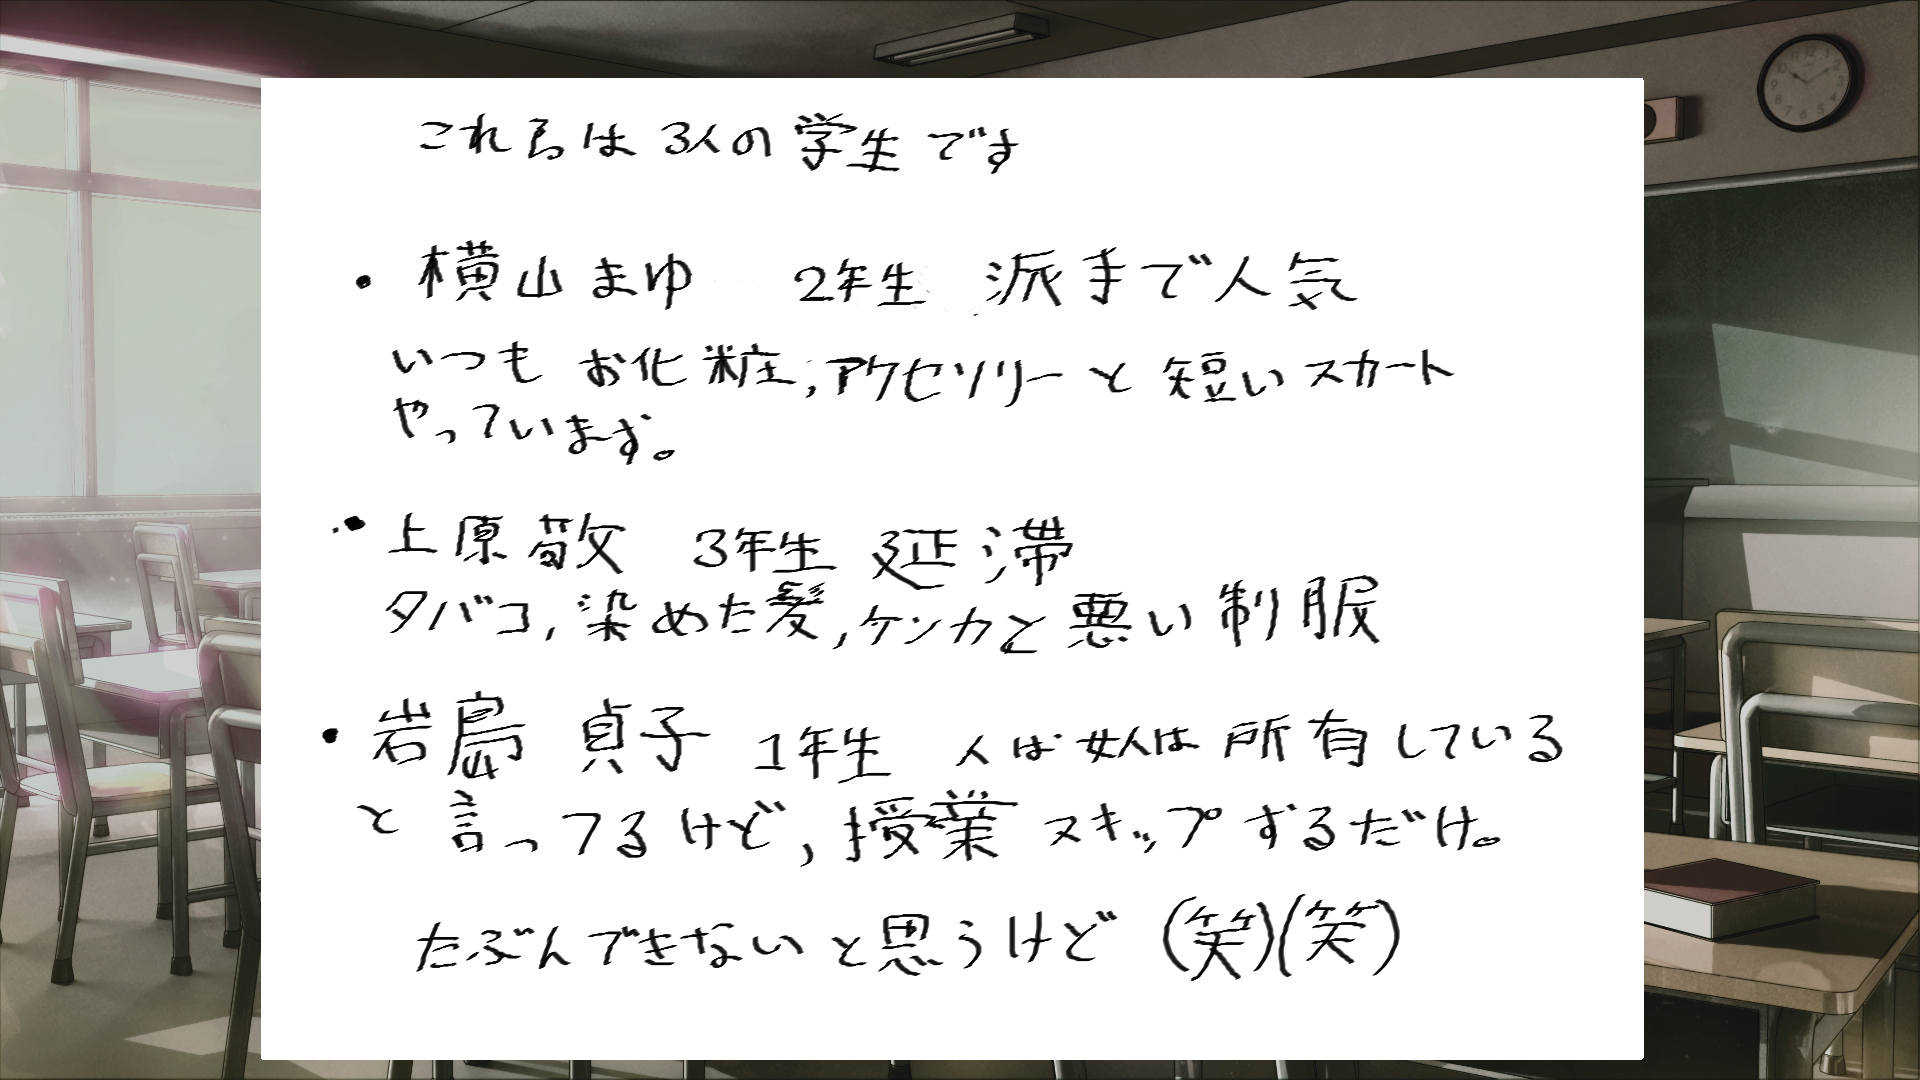 これらは3人の学生です
・横山まゆ 2年生 派手で人気
いつもお化粧,アクセソリーと短いスカート
やっています。
・上原敬 3年生 延滞
タバコ,染めた髪,ケンカと悪い制服
・岩島 貞子 1年生 人は女人は所有している
と言ってるけど,授業スキップするだけ。
たぶんできないと思うけど (笑)(笑)